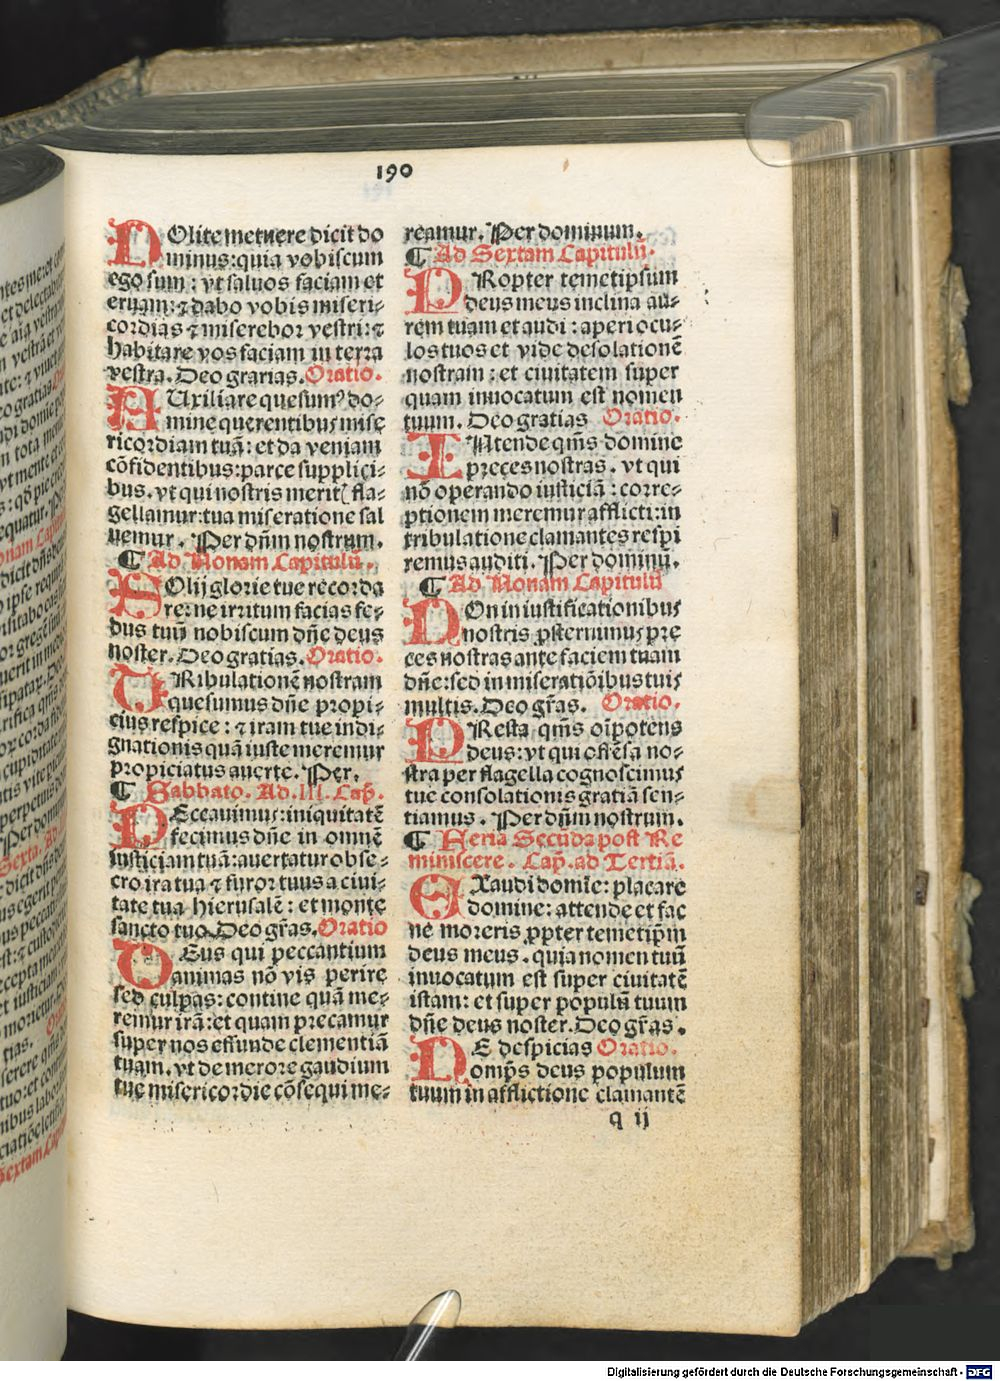 190
NOlite metuere dicit do
minus: quia vobiscum
ego sum: vt saluos faciam et
eruam: ⁊ dabo vobis miseri-
cordias ⁊ miserebor vestri: ⁊
habitare vos faciam in terra
vestra. Deo grarias. Oratio.
AUxiliare quesumꝰ do-
mine querentibus mise
ricordiam tuã: et da veniam
cõfidentibus: parce supplici-
bus. vt qui nostris merit( fla-
gellamur: tua miseratione sal
uemur. Per dñm nostrum.
¶ Ad Nonam Capitulũ.
SOlij glorie tue recorda
re: ne irritum facias fe-
dus tuũ nobiscum dñe deus
noster. Deo gratias. Oratio.
TRibulationẽ nostram
quesumus dñe propi-
cius respice: ⁊ iram tue indi-
gnationis quã iuste meremur
propiciatus auerte. Per.
¶ Sabbato. Ad. III. Cap̃.
PEccauimus: iniquitatẽ
fecimus dñe in omnẽ
iusticiam tuã: auertatur obse-
cro ira tua ⁊ furor tuus a ciui-
tate tua hierusalẽ: et monte
sancto tuo. Deo gr̃as. Oratio
DEus qui peccantium
animas nõ vis perire
sed culpas: contine quã me-
remur irã: et quam precamur
super nos effunde clementiã
tuam. vt de merore gaudium
tue misericordie cõsequi me-
reamur. Per dominum.
¶ Ad Sextam Capitulũ.
PRopter temetipsum
deus meus inclina au-
rem tuam et audi: aperi ocu-
los tuos et vide desolationẽ
nostram: et ciuitatem super
quam inuocatum est nomen
tuum. Deo gratias Oratio.
INtende qm̃s domine
preces nostras. vt qui
nõ operando iusticiã: corre-
ptionem meremur afflicti: in
tribulatione clamantes respi
remus auditi. Per dominũ.
¶ Ad Nonam Capitulũ
NOn in iustificationibus
nostris ꝓsternimus pre
ces nostras ante faciem tuam
dñe: sed in miseratiõibus tuis
multis. Deo gr̃as. Oratio.
PResta qm̃s oĩpotens
deus: vt qui offẽsa no-
stra per flagella cognoscimus
tue consolationis gratiã sen-
tiamus. Per dñm nostrum.
¶ Feria Secũda post Re
miniscere. Cap̃. ad Tertiã.
EXaudi domĩe: placare
domine: attende et fac
ne moreris ꝓpter temetip̃m
deus meus. quia nomen tuũ
inuocatum est super ciuitatẽ
istam: et super populũ tuum
dñe deus noster. Deo gr̃as.
NE despicias Oratio.
omp̃s deus populum
tuum in afflictione clamantẽ
q ij
Digitalisierung gefördert durch die Deutsche Forschungsgemeinschaft - DFG